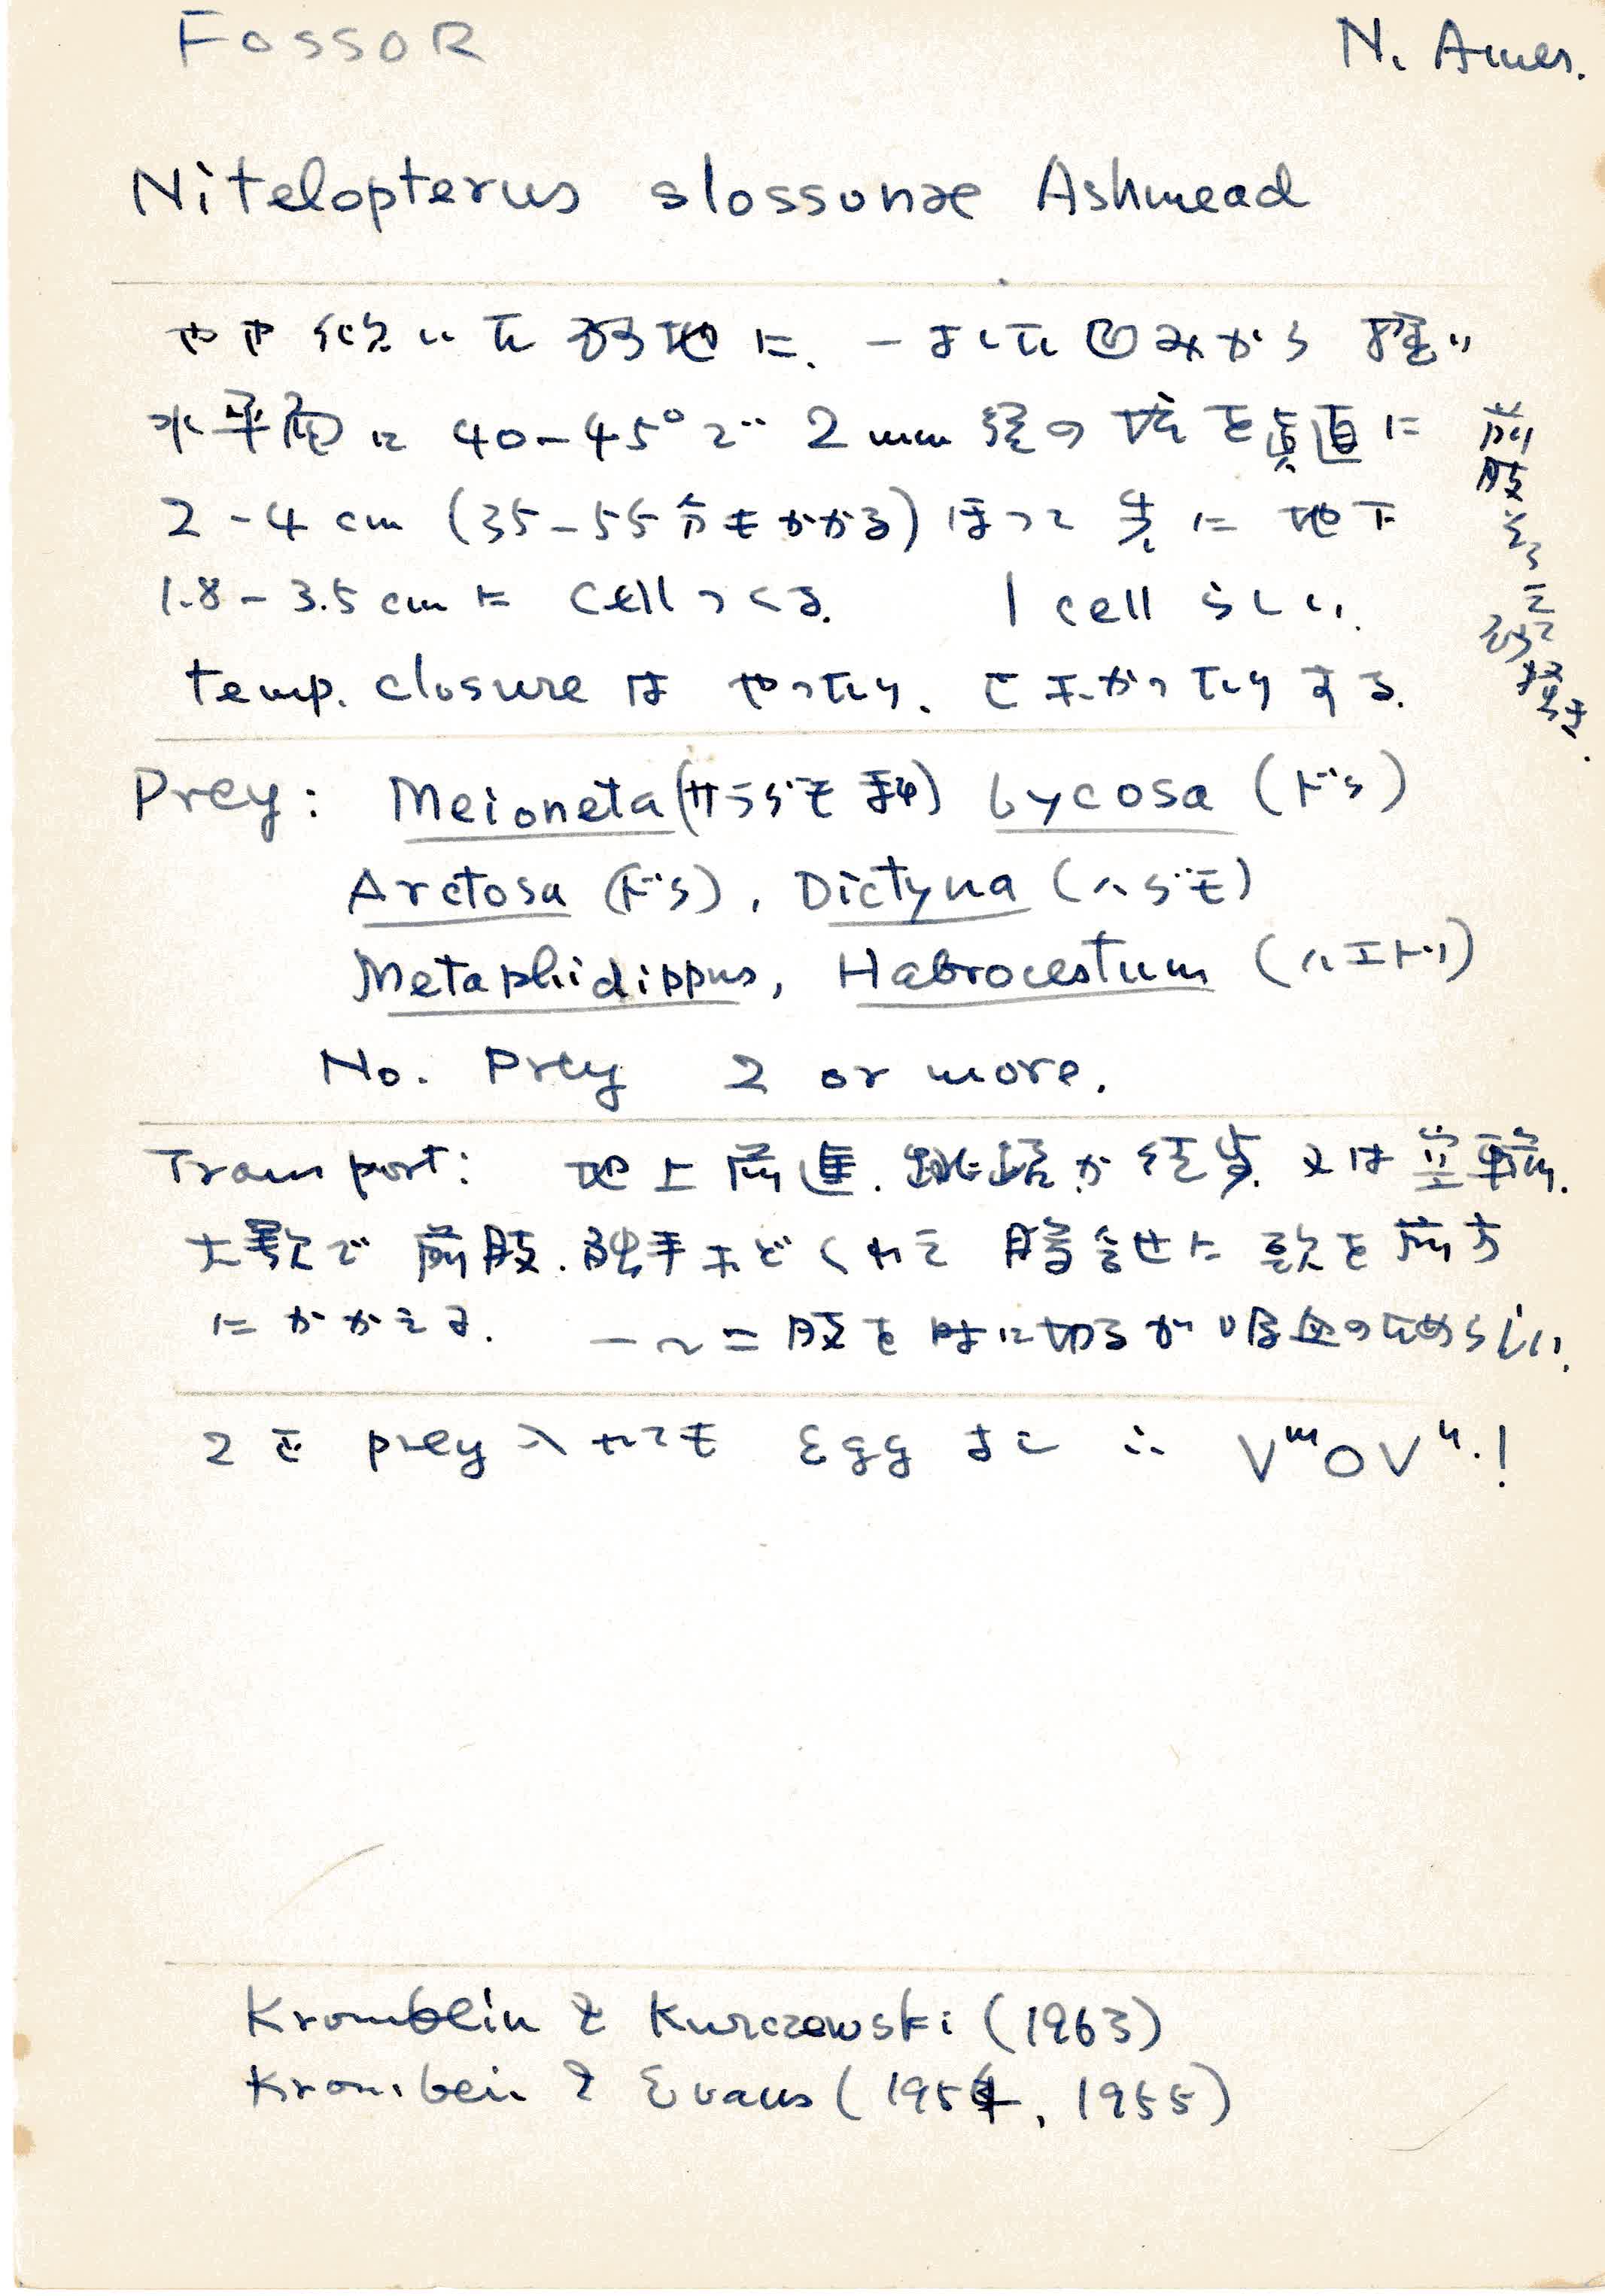 FOSSOR
N. Amer.
Nitelopterus slossonae Ashmead
やや いた 砂地に、一 した凹みから 掘り
水平面に 40-45°で 2mm径の坑を真直に
2-4cm (35-55分もかかる) ほって先に 地下
1.8-3.5cmに cellつくる. 1 cell らしい.
temp. closureは やったり、さぼったりする.
前肢
砂
Prey: Meioneta (サラグモ科) Lycosa (ドク)
Arctosa (ドク), Dictyna (ハグモ)
Metaphidippus, Habrocestum (ハエトリ)
No. Prey 2 or more.
Transport: 地上前進. 跳躍か 徒歩. 又は 空輸.
大顎で 前肢.触手などくわえ 腹合せに を前方
にかかえる. 一〜二肢を時に切るが 吸血のためらしい.
2も prey 入れても Egg なし ∴ VᵐOVⁿ.!
Kromblin & Kurczewski (1963)
Krombein & Evans (1954, 1955)